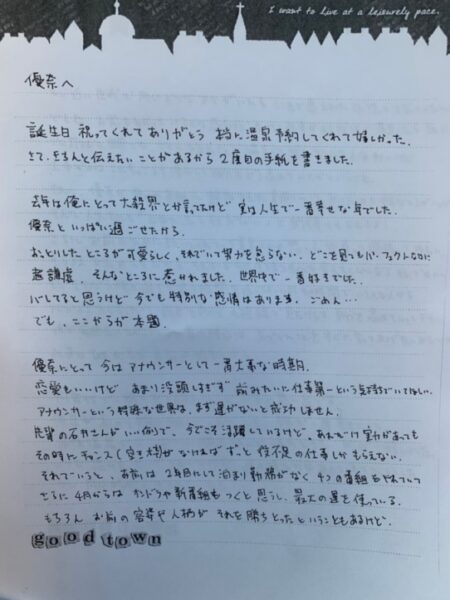 I want to live at a leisurely pace.
優奈へ
誕生日 祝ってくれてありがとう 本当に温泉予約してくれて嬉しかった。
さて、きちんと伝えたいことがあるから 2度目の手紙を書きました。
去年は俺にとって大殺界とか言ってたけど 実は人生で一番幸せな年でした。
優奈といっぱい過ごせたから。
おっとりしたところが可愛らしく、それでいて努力を怠らない。どこを見てもパーフェクトなのに
超謙虚。そんなところに惹かれました。世界中で一番好きでした。
バレてると思うけど 今でも特別な感情はあります。ごめん…
でも、ここからが本題。
優奈にとって 今は アナウンサーとして一番大事な時期。
恋愛もいいけど あまり没頭しすぎず 前みたいに仕事第一という気持ちでいてほしい。
アナウンサーという特殊な世界は、まず運がないと成功しません。
先輩の石井さんがいい例で、今でこそ活躍しているけど、あれだけ実力があっても
その時にチャンス(空き枠)がなければ ずっと役不足の仕事しかもらえない。
それでいうと、お前は 2年目にして泊まり勤務がなく 4つの番組をやれていて
さらに 4月からは カンドラや新番組もつくと思うし、最大の運を使っている。
もちろん お前の容姿や人柄が それを勝ちとったということもあるけど。
good town